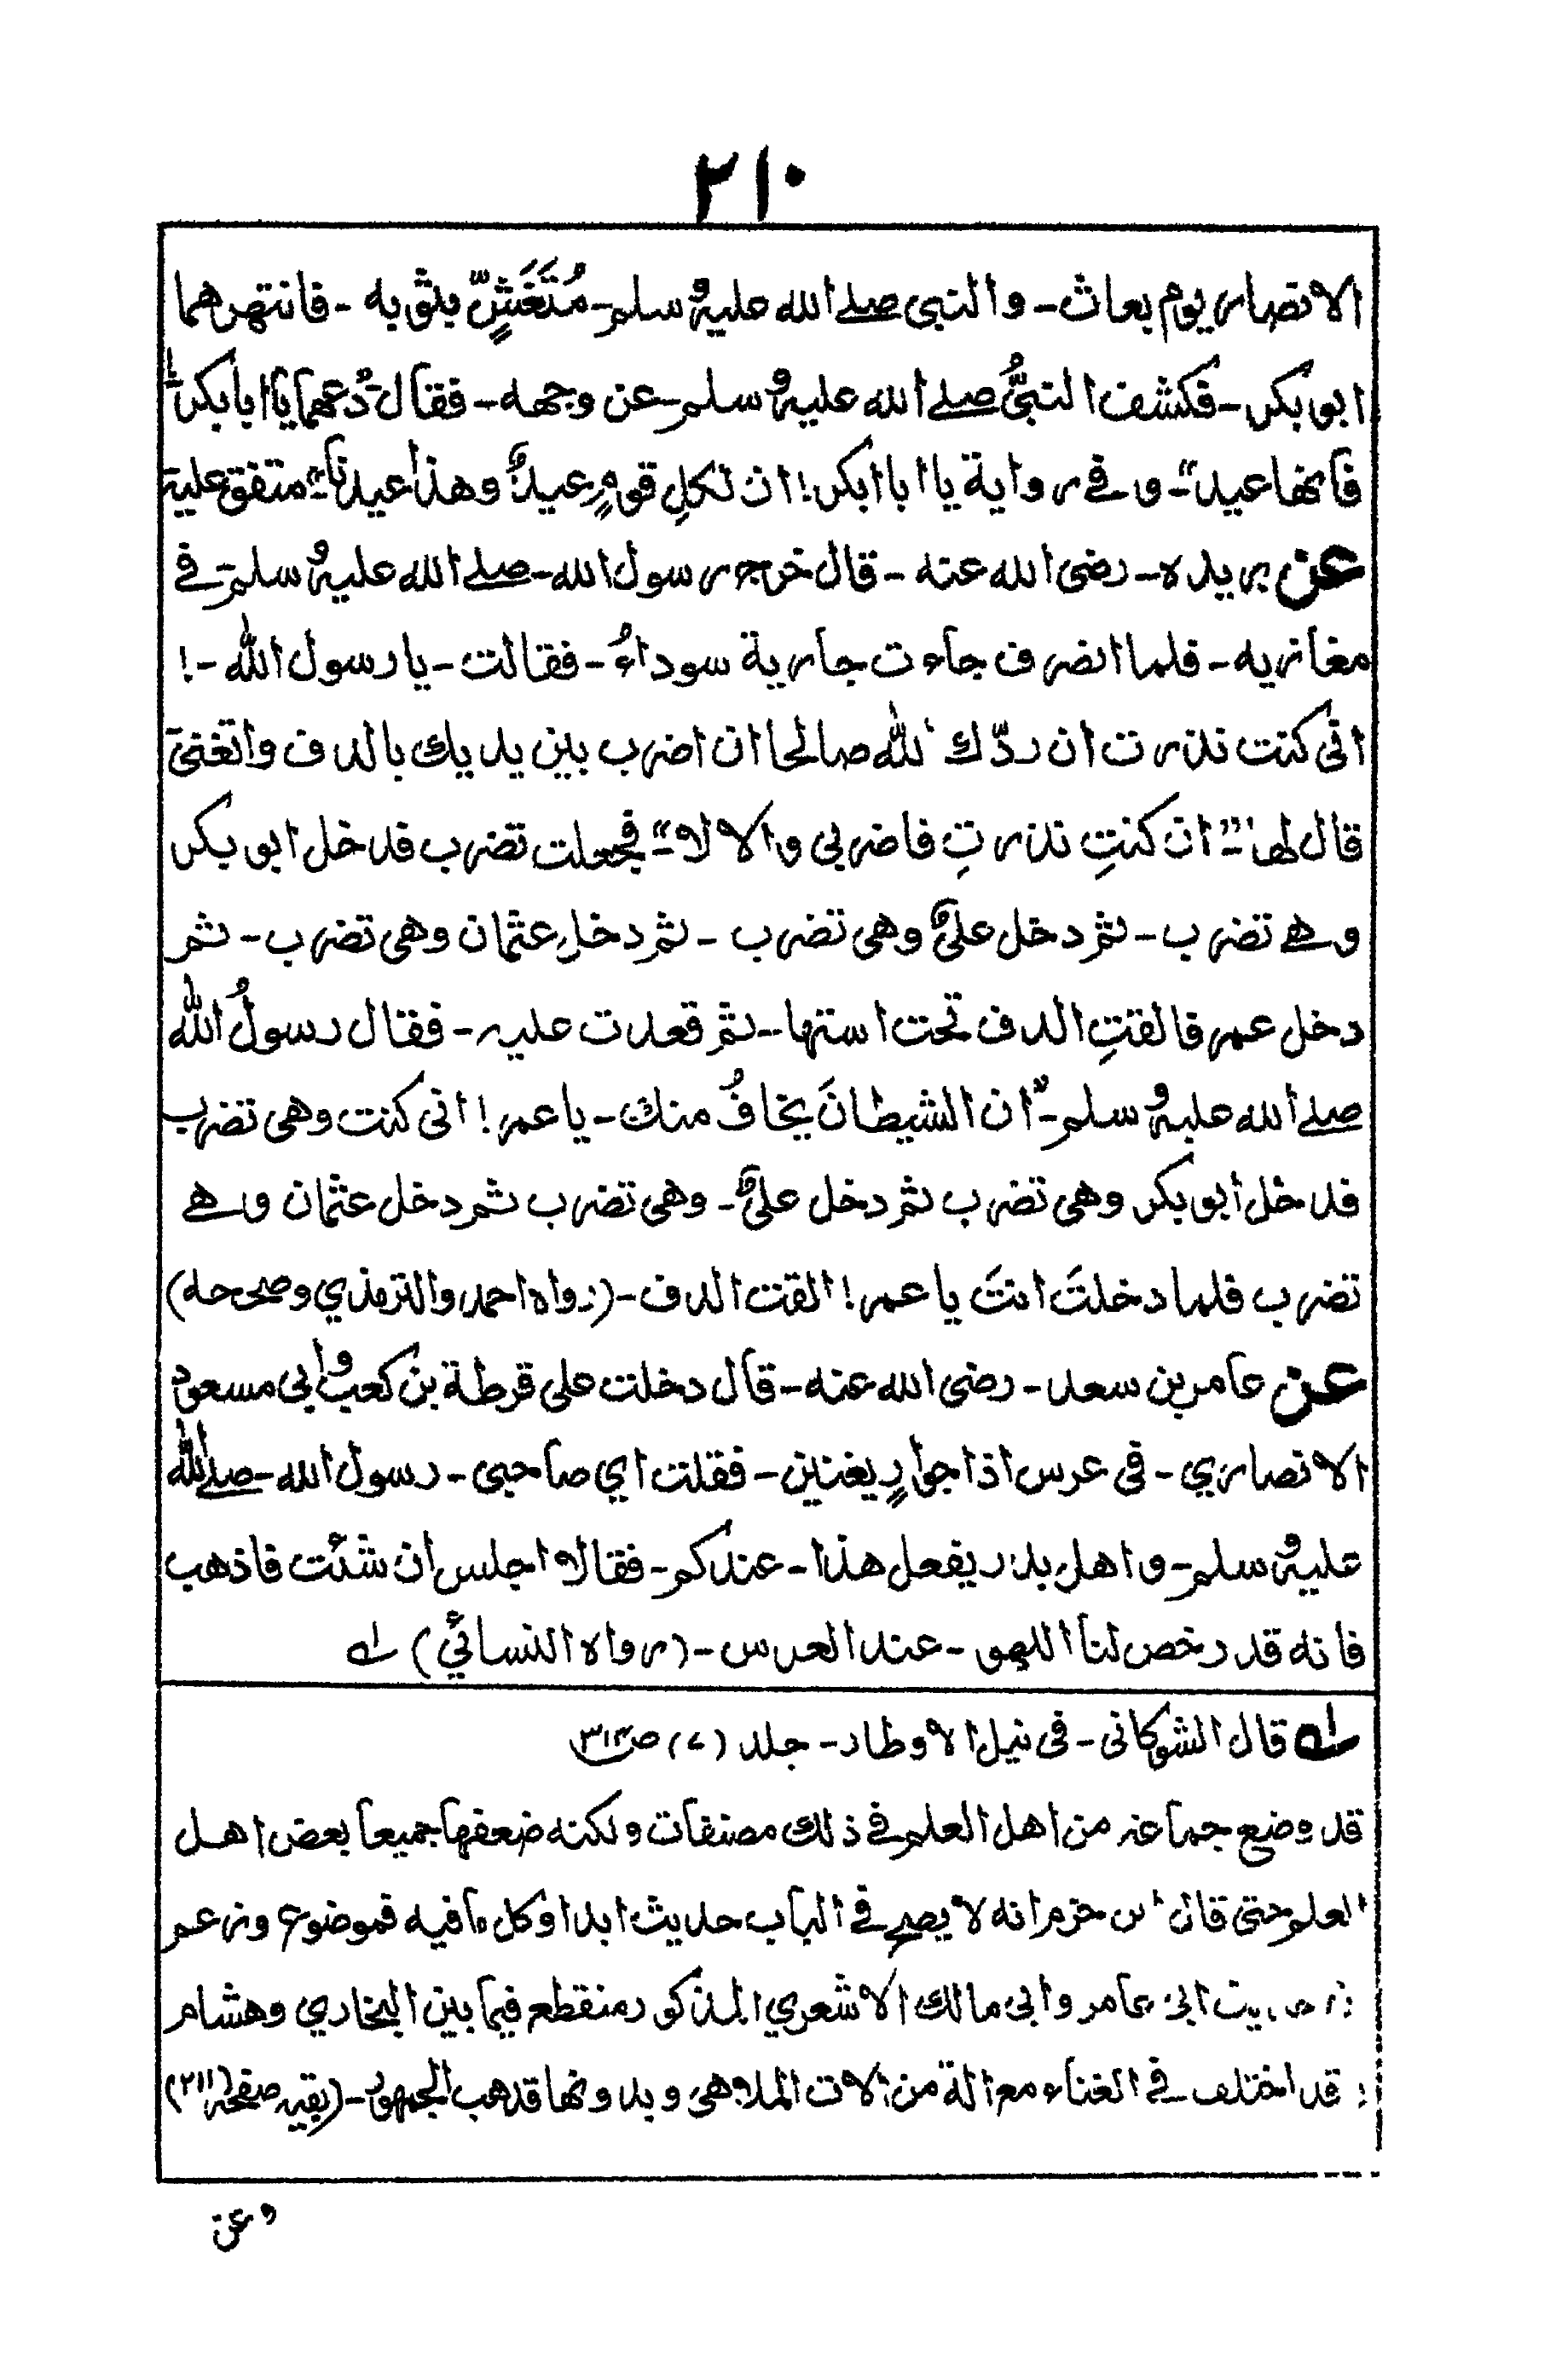 ٢١٠
الانصار يوم بعاث - والنبى صلے الله عليه و سلم - مُتَغَشٍّ بثوبه - فانتهرهما
ابو بكر - فكشف النبىُّ صلے الله عليه و سلم - عن وجهه - فقال "دعهما يا ابا بكر!
فانها عيد" - و فے رواية يا ابا ابكر! ان لكلِ قومٍ عيدٌ وهذا عيدنا" متفق عليه
عن بريده - رضى الله عنه - قال خرج رسول الله - صلے الله عليه و سلم - فے
مغازيه - فلما انصرف جاءت جارية سوداءُ - فقالت - يا رسول الله - !
انى كنت نذرت ان ردّك الله صالحا ان اضرب بين يديك بالدف واتغنى
قال لها - "ان كنتِ نذرتِ فاضربى والا لا" - فجعلت تضرب فدخل ابو بكر
وهے تضرب - ثم دخل علىٌ وهى تضرب - ثم دخل عثمان وهى تضرب - ثم
دخل عمر فالقتِ الدف تحت استها - ثم قعدت عليه - فقال رسولُ الله
صلے الله عليه و سلم - "ان الشيطانَ يخافُ منك - يا عمر! انى كنت وهى تضرب
فدخل ابو بكر وهى تضرب ثم دخل علىٌ - وهى تضرب ثم دخل عثمان وهے
تضرب فلما دخلتَ انتَ يا عمر! القت الدف - (رواه احمد والترمذي وصححه)
عن عامر بن سعد - رضى الله عنه - قال دخلت على قرظة بن كعب و ابى مسعود
الانصاري - فى عرس اذا جوارٍ يغنين - فقلت اي صاحبى - رسول الله - صلے الله
عليه و سلم - و اهل بدر يفعل هذا - عندكم - فقالا اجلس ان شئت فاذهب
فانه قد رخص لنا اللهو - عند العرس - (رواه النسائي) لـه
لـه قال الشوكانى - فى نيل الاوطار - جلد (٧) ص٣١٣
قد وضع جماعة من اهل العلم فے ذلك مصنفات ولكنه ضعفها جميعا بعض اهل
العلم حتى قال ابن حزم انه لا يصح فے الباب حديث ابدا وكل ما فيه فموضوع وزعم
ان حديث ابى عامر وابى مالك الاشعري المذكور منقطع فيما بين البخاري وهشام
و قد اختلف فے الغناء مع الة من الات الملاهى وبدونها فذهب الجمهور - (بقيه صفحه ٢١١)
و عن